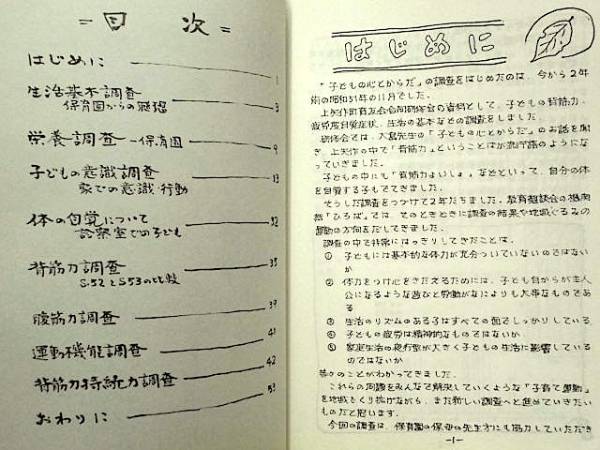 = 目 次 =
はじめに 1
生活基本調査
保育園からの疑問 3
栄養調査 - 保育園 9
子どもの意識調査 13
家での意識・行動
体の自覚について 32
診察室での子ども
背筋力調査 35
S.52とS.53の比較
腹筋力調査 39
運動機能調査 41
背筋力持続力調査 42
おわりに 53
はじめに
「子どもの心とからだ」の調査をはじめたのは、今から2年
前の昭和51年の11月でした。
上矢作町育友会合同研修会の資料として、子どもの背筋力、
疲労度自覚症状、生活の基本などの調査をしました。
研修会では、大島先生の「子どもの心とからだ」のお話を聞
き、上矢作の中で「背筋力」ということばが流行語のようにな
っていきました。
子どもの中にも「背筋力よいしょ」などといって、自分の体
を自覚する子もでてきました。
そうした調査をつづけて2年たちました。教育懇談会の機関
誌「ひろば」では、そのときどきに調査の結果や地域ぐるみの
運動の方向をだしてきました。
調査の中で非常にはっきりしてきたことは、
① 子どもには基本的な体力が充分ついていないのではない
か
② 体力をつけ心をきたえるためには、子ども自からが主人
公になるような遊びと労働がなによりも大事なものであ
る
③ 生活のリズムのある子はすべての面でしっかりしている
④ 子どもの疲労は精神的なものではないか
⑤ 家庭生活の夜行型が大きく子どもの生活に影響している
のではないか
等々のことがわかってきました。
これらの問題をみんなで解決していくような「子育て運動」
を地域とくり拡げながら、また新しい調査へと進めていきたい
ものだと思います。
今回の調査は、保育園の保母の先生方にも協力していただき
-1-